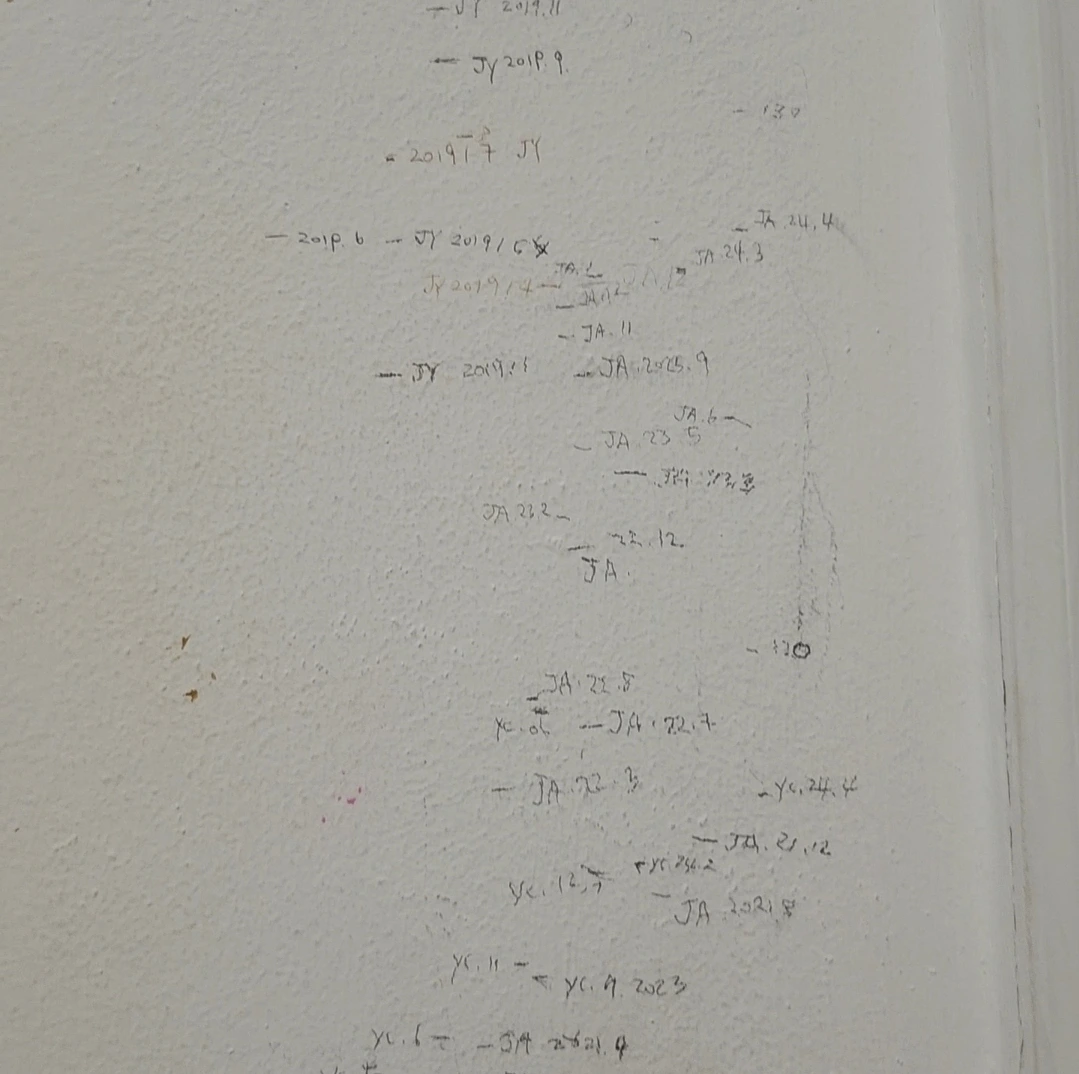 JY 2019.11
JY 2019.9
130
2019 1.7 JY
JA.24.4
2019.6
JY 2019/6
JA.24.3
JY 2019/4
JA.1
JA.11
JY 2019.1
JA.2023.9
JA.6
JA.23.5
JA.23.2
22.12
JA.
120
JA.22.8
YC.
JA.22.7
JA.22.3
YC.24.4
JA.21.12
YC.12
YC.24.2
JA.2021.8
YC.11
YC.9.2023
YC.6
JA 2021.4